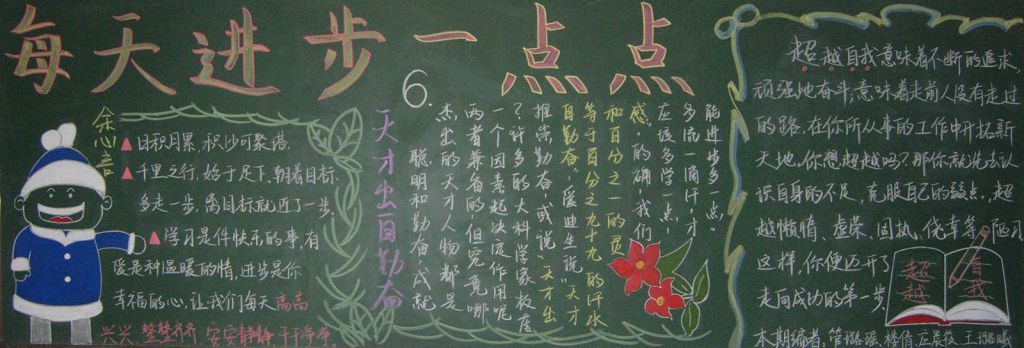 每天进步一点点
余心言
▲日积月累,积沙可聚塔.
▲千里之行,始于足下,朝着目标
多走一步,离目标就近了一步。
▲学习是件快乐的事,有
爱是种温暖的情,进步是你
幸福的心,让我们每天高高
兴兴、整整齐齐、安安静静、干干净净。
6.
天才出自勤奋
聪明和勤奋成就
杰出的天才人物都是
两者兼备的,但究竟哪
一个因素起决定作用呢
?许多的大科学家极度
推崇勤奋,或说“天才出
自勤奋”,爱迪生说“天才
等于百分之九十九的汗水
和百分之一的灵
感”,的确,我们
应该多学一点,
多流一滴汗,才
能进步多一点。
超越自我意味着不断的追求,
顽强地奋斗;意味着走前人没有走过
的路,在你所从事的工作中开拓新
天地。你想超越吗?那你就先去认
识自身的不足,克服自己的缺点,超
越懒惰、虚荣、固执、侥幸等陋习
这样,你便迈开了
走向成功的第一步
超越
自我
本期编者:管璐瑶